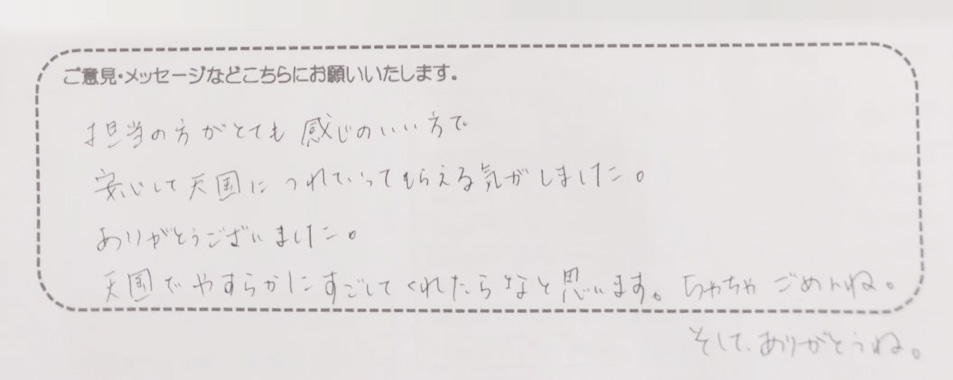 ご意見・メッセージなどこちらにお願いいたします。
担当の方がとても 感じのいい方で
安心して天国に つれていってもらえる気がしました。
ありがとうございました。
天国でやすらかにすごしてくれたらなと思います。ちゃちゃ ごめんね。
そして、ありがとうね。